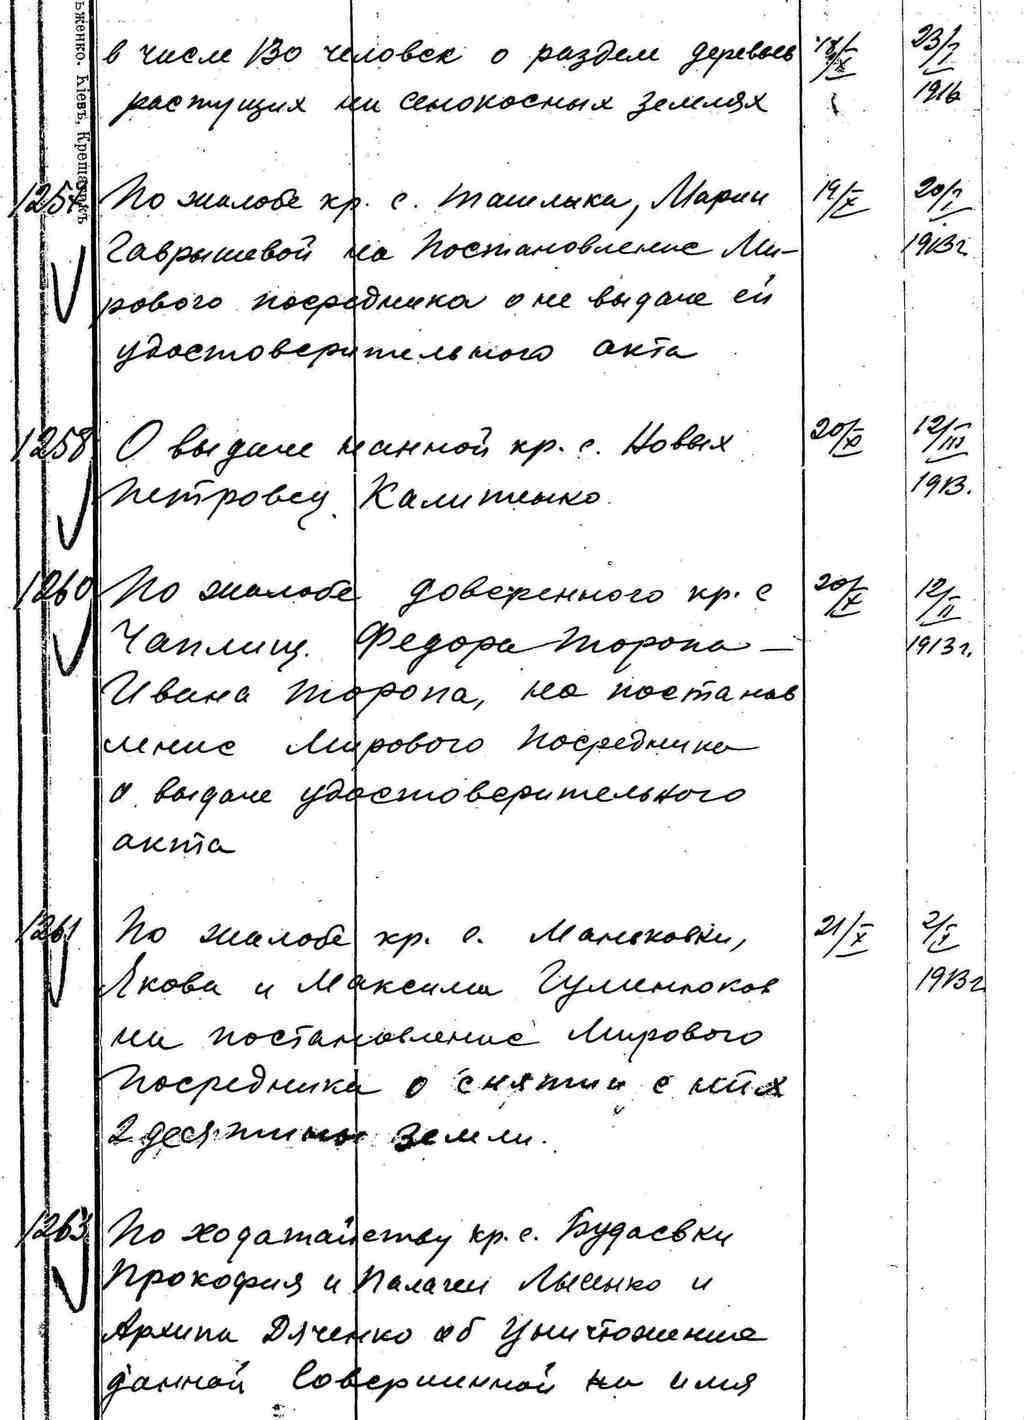 в числе 130 человек о раздел деревьев 18/X 23/I
растущих на сенокосных землях 1916
1254 По жалобе кр. с. Ташлыка, Марии 19/X 20/I
Гаврышевой на Постановление Ми- 1913г.
рового посредника о не выдаче ей
удостоверительного акта
1258 О выдаче данной кр. с. Новых 20/XI 12/III
Петровец Калитенко 1913.
1260 По жалобе доверенного кр. с 20/X 12/II
Чаплищ. Федора Торопа – 1913г.
Ивана Торопа, на постанов
ление Мирового Посредника
о выдаче удостоверительного
акта
1261 По жалобе кр. с. Маньковки, 21/X 2/I
Якова и Максима Гуменюков 1913г
на постановление Мирового
Посредника о снятии с них
2 десятины земли.
1263 По ходатайству кр. с. Будаевки
Прокофия и Палагеи Лысенко и
Архипа Дяченко об Уничтожение
данной Совершинной на имя
ьженко. Кіевъ, Крещатикъ